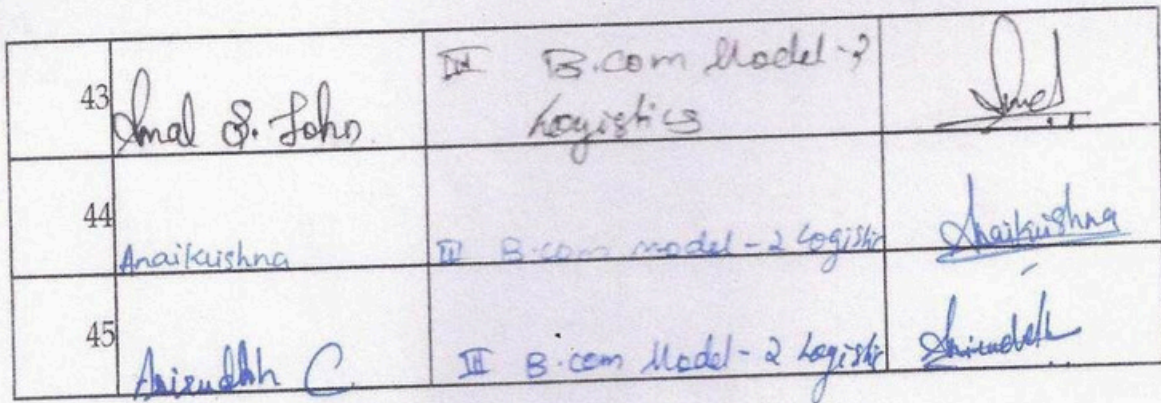 43 Amal S. John III B.com Model-2
Logistics Amal
44 Anaikrishna III B.com model-2 Logistic Anaikrishna
45 Anirudhh C III B.com Model-2 Logistic Anirudhh